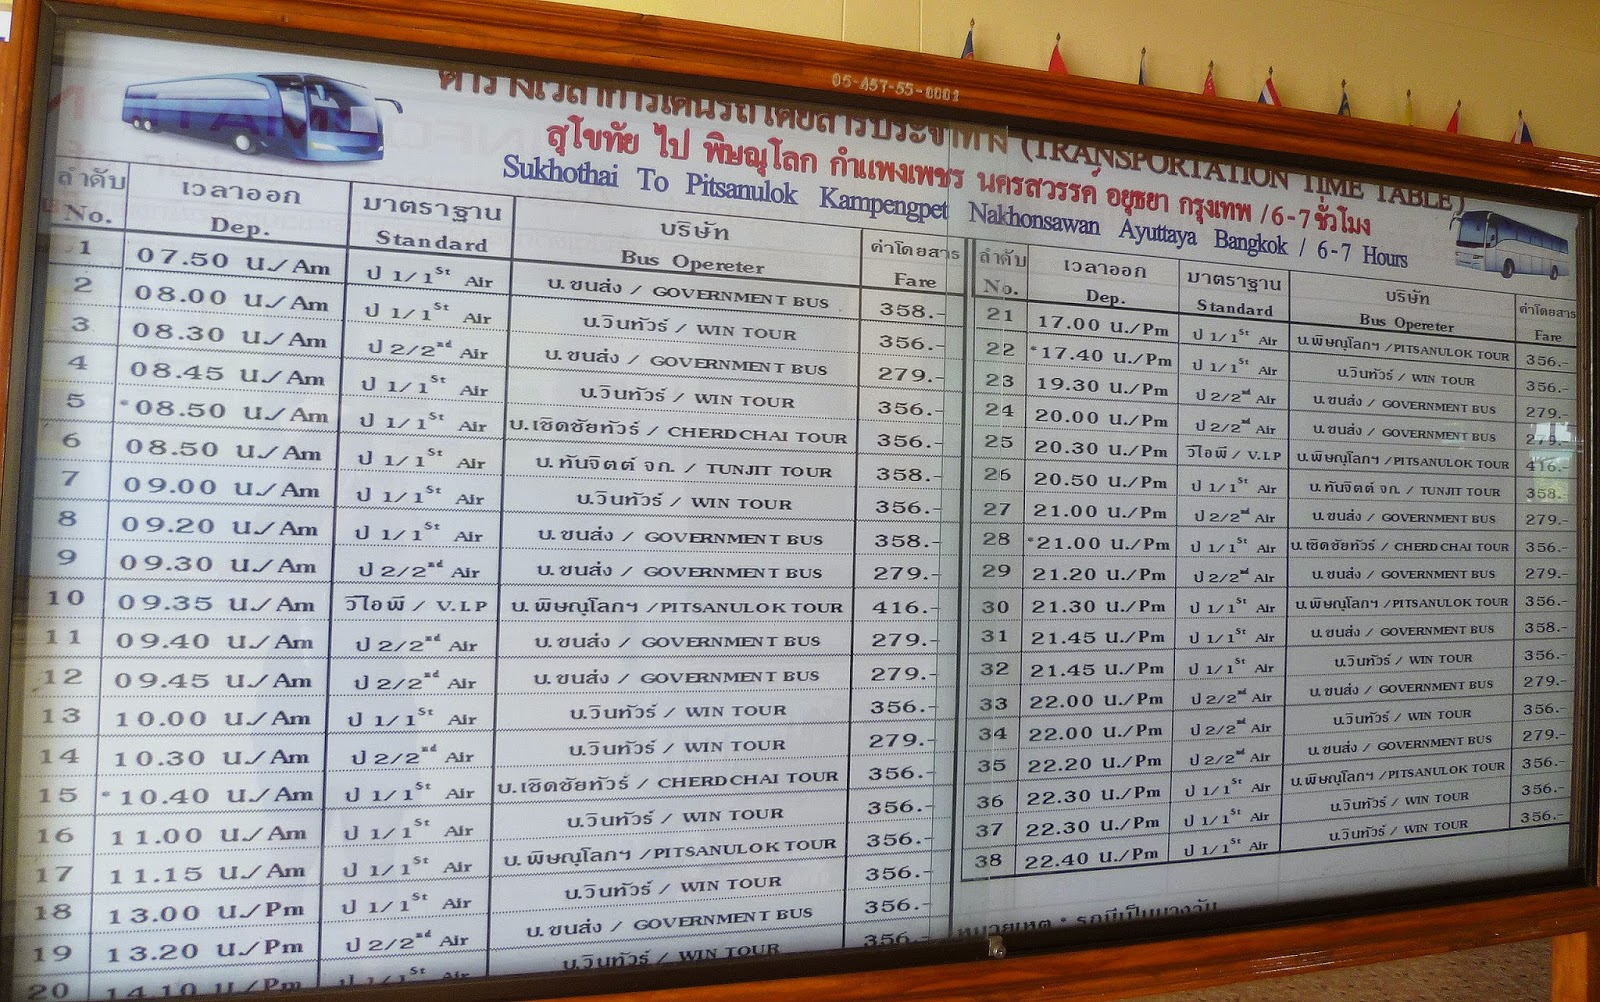 05-457-55-0001
ตารางเวลาการเดินรถโดยสารประจำทาง (TRANSPORTATION TIME TABLE)
สุโขทัย ไป พิษณุโลก กำแพงเพชร นครสวรรค์ อยุธยา กรุงเทพ /6-7ชั่วโมง
Sukhothai To Pitsanulok Kampengpet Nakhonsawan Ayuttaya Bangkok / 6-7 Hours
ลำดับ เวลาออก มาตราฐาน บริษัท ค่าโดยสาร
No. Dep. Standard Bus Opereter Fare
1 07.50 น./Am ป 1/1St Air บ.ขนส่ง / GOVERNMENT BUS 358.-
2 08.00 น./Am ป 1/1St Air บ.วินทัวร์ / WIN TOUR 356.-
3 08.30 น./Am ป 2/2nd Air บ.ขนส่ง / GOVERNMENT BUS 279.-
4 08.45 น./Am ป 1/1St Air บ.วินทัวร์ / WIN TOUR 356.-
5 *08.50 น./Am ป 1/1St Air บ.เชิดชัยทัวร์ / CHERDCHAI TOUR 356.-
6 08.50 น./Am ป 1/1St Air บ.ทันจิตต์ จก. / TUNJIT TOUR 358.-
7 09.00 น./Am ป 1/1St Air บ.วินทัวร์ / WIN TOUR 356.-
8 09.20 น./Am ป 1/1St Air บ.ขนส่ง / GOVERNMENT BUS 358.-
9 09.30 น./Am ป 2/2nd Air บ.ขนส่ง / GOVERNMENT BUS 279.-
10 09.35 น./Am วีไอพี / V.I.P บ.พิษณุโลกฯ /PITSANULOK TOUR 416.-
11 09.40 น./Am ป 2/2nd Air บ.ขนส่ง / GOVERNMENT BUS 279.-
12 09.45 น./Am ป 2/2nd Air บ.ขนส่ง / GOVERNMENT BUS 279.-
13 10.00 น./Am ป 1/1St Air บ.วินทัวร์ / WIN TOUR 356.-
14 10.30 น./Am ป 2/2nd Air บ.วินทัวร์ / WIN TOUR 279.-
15 *10.40 น./Am ป 1/1St Air บ.เชิดชัยทัวร์ / CHERDCHAI TOUR 356.-
16 11.00 น./Am ป 1/1St Air บ.วินทัวร์ / WIN TOUR 356.-
17 11.15 น./Am ป 1/1St Air บ.พิษณุโลกฯ /PITSANULOK TOUR 356.-
18 13.00 น./Pm ป 1/1St Air บ.วินทัวร์ / WIN TOUR 356.-
19 13.20 น./Pm ป 2/2nd Air บ.ขนส่ง / GOVERNMENT BUS 356.-
20 14.10 น./Pm ป 1/1St Air บ.วินทัวร์ / WIN TOUR 356.-
ลำดับ เวลาออก มาตราฐาน บริษัท ค่าโดยสาร
No. Dep. Standard Bus Opereter Fare
21 17.00 น./Pm ป 1/1St Air บ.พิษณุโลกฯ /PITSANULOK TOUR 356.-
22 *17.40 น./Pm ป 1/1St Air บ.วินทัวร์ / WIN TOUR 356.-
23 19.30 น./Pm ป 2/2nd Air บ.ขนส่ง / GOVERNMENT BUS 279.-
24 20.00 น./Pm ป 2/2nd Air บ.ขนส่ง / GOVERNMENT BUS 279.-
25 20.30 น./Pm วีไอพี / V.I.P บ.พิษณุโลกฯ /PITSANULOK TOUR 416.-
26 20.50 น./Pm ป 1/1St Air บ.ทันจิตต์ จก. / TUNJIT TOUR 358.-
27 21.00 น./Pm ป 2/2nd Air บ.ขนส่ง / GOVERNMENT BUS 279.-
28 *21.00 น./Pm ป 1/1St Air บ.เชิดชัยทัวร์ / CHERDCHAI TOUR 356.-
29 21.20 น./Pm ป 2/2nd Air บ.ขนส่ง / GOVERNMENT BUS 279.-
30 21.30 น./Pm ป 1/1St Air บ.พิษณุโลกฯ /PITSANULOK TOUR 356.-
31 21.45 น./Pm ป 1/1St Air บ.ขนส่ง / GOVERNMENT BUS 358.-
32 21.45 น./Pm ป 1/1St Air บ.วินทัวร์ / WIN TOUR 356.-
33 22.00 น./Pm ป 2/2nd Air บ.ขนส่ง / GOVERNMENT BUS 279.-
34 22.00 น./Pm ป 2/2nd Air บ.วินทัวร์ / WIN TOUR 356.-
35 22.20 น./Pm ป 2/2nd Air บ.ขนส่ง / GOVERNMENT BUS 279.-
36 22.30 น./Pm ป 1/1St Air บ.พิษณุโลกฯ /PITSANULOK TOUR 356.-
37 22.30 น./Pm ป 1/1St Air บ.วินทัวร์ / WIN TOUR 356.-
38 22.40 น./Pm ป 1/1St Air บ.วินทัวร์ / WIN TOUR 356.-
หมายเหตุ * รถมีเป็นบางวัน